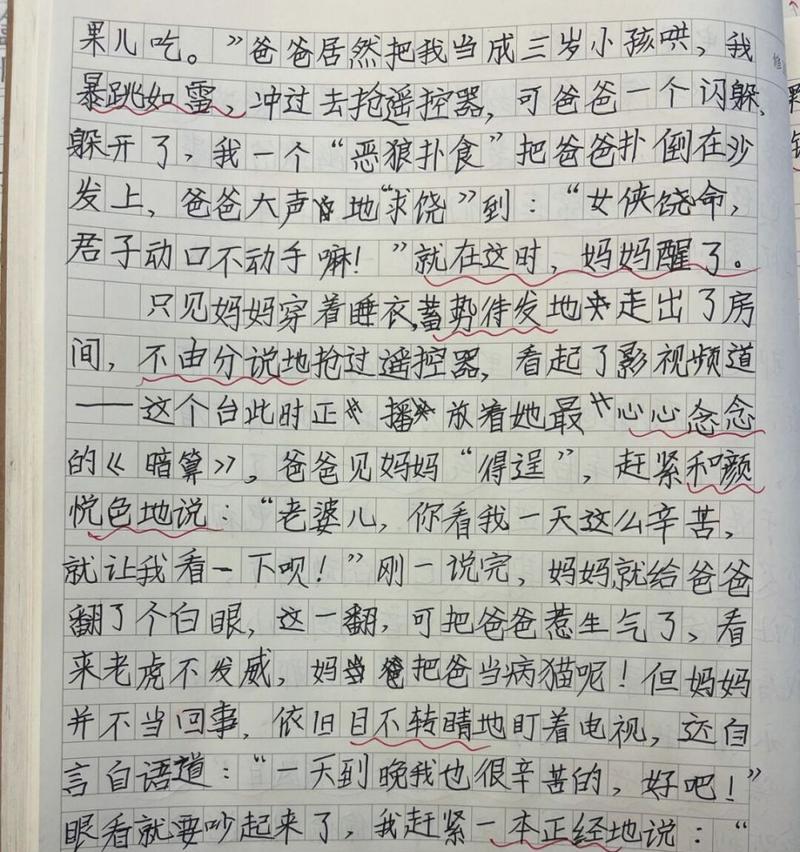 果儿吃。”爸爸居然把我当成三岁小孩哄，我
暴跳如雷，冲过去抢遥控器，可爸爸一个闪躲，
躲开了，我一个“恶狼扑食”把爸爸扑倒在沙
发上，爸爸大声地“求饶”到：“女侠饶命，
君子动口不动手嘛！”就在这时，妈妈醒了。
只见妈妈穿着睡衣，蓄势待发地走出了房
间，不由分说地抢过遥控器，看起了影视频道
——这个台此时正播放着她最“心心念念
的《暗算》。爸爸见妈妈“得逞”，赶紧和颜
悦色地说：“老婆儿，你看我一天这么辛苦，
就让我看一下呗！”刚一说完，妈妈就给爸爸
翻了个白眼，这一翻，可把爸爸惹生气了，看
来老虎不发威，妈把爸当病猫呢！但妈妈
并不当回事，依旧目不转睛地盯着电视，还自
言自语道：“一天到晚我也很辛苦的，好吧！”
眼看就要吵起来了，我赶紧一本正经地说：“